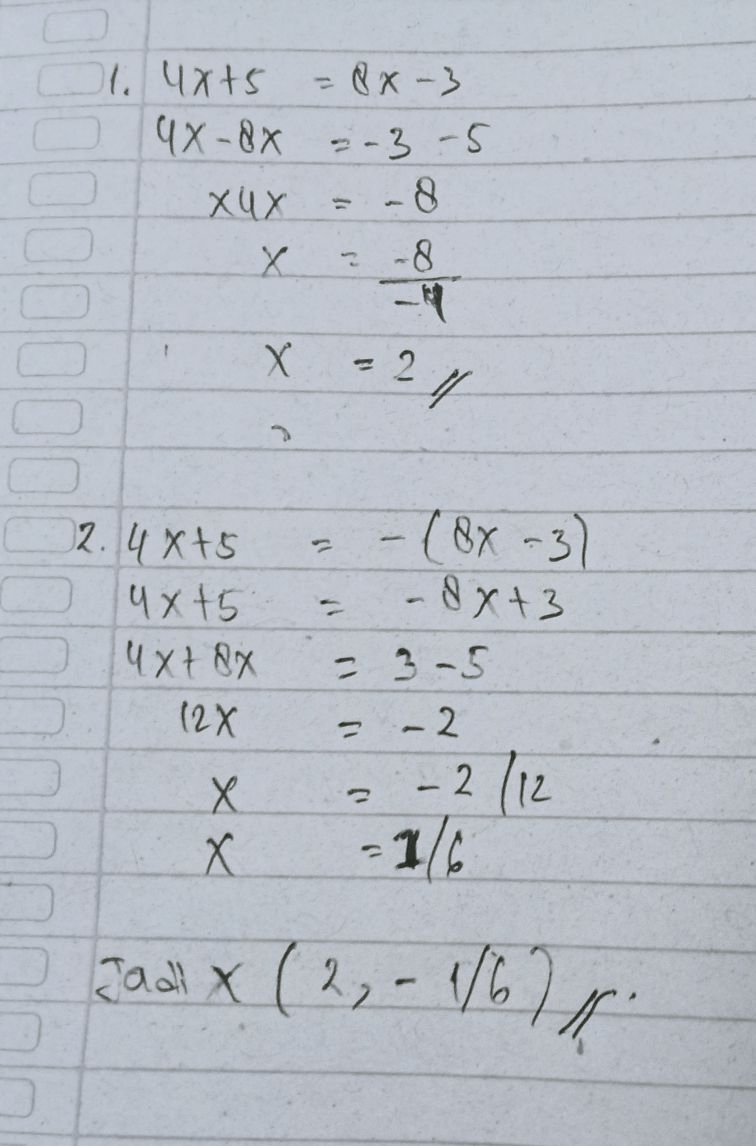 1. 4x+5 = 8x-3
4x-8x = -3 -5
x4x = -8
x = -8
-4
x = 2 //
2. 4x+5 = -(8x-3)
4x+5 = -8x+3
4x+8x = 3-5
12x = -2
x = -2/12
x = 1/6
Jadi x (2, -1/6) //